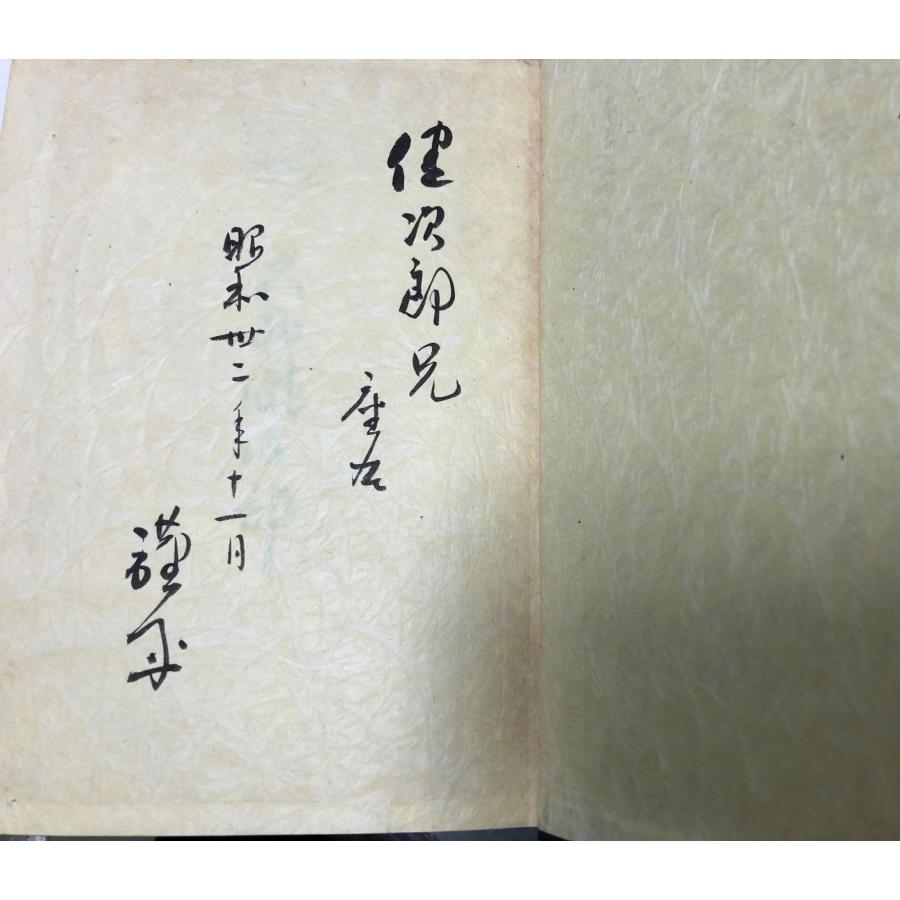 健次郎兄
座右
昭和卅二年十一月
謹